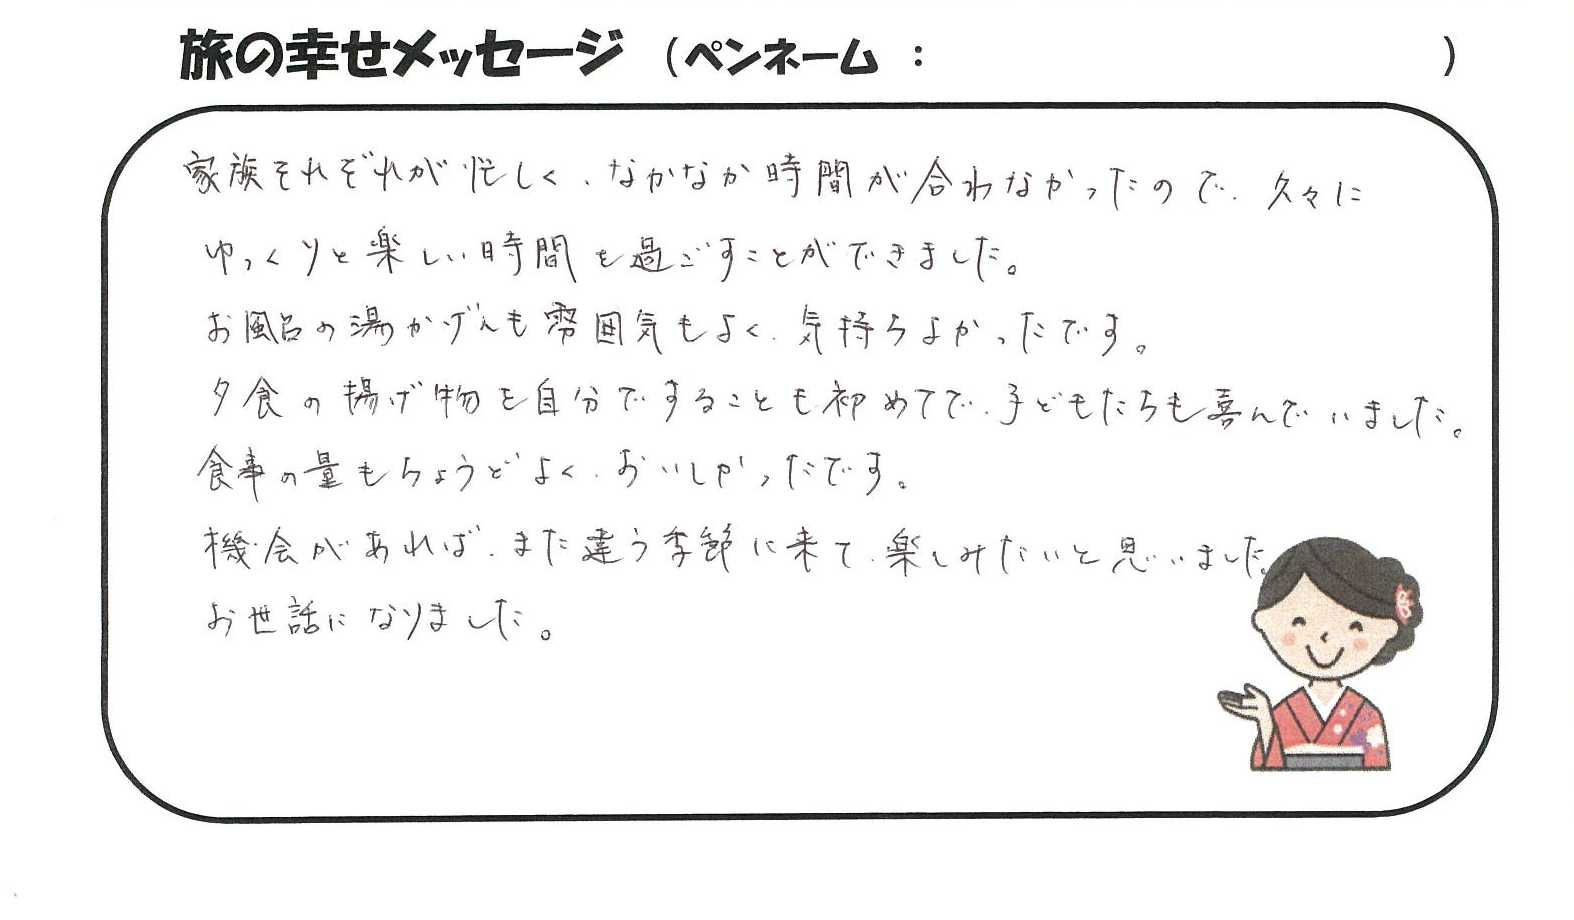 旅の幸せメッセージ （ペンネーム：　　　　　　）
家族それぞれが忙しく、なかなか時間が合わなかったので、久々に
ゆっくりと楽しい時間を過ごすことができました。
お風呂の湯かげんも雰囲気もよく、気持ちよかったです。
夕食の揚げ物を自分ですることも初めてで、子どもたちも喜んでいました。
食事の量もちょうどよく、おいしかったです。
機会があれば、また違う季節に来て、楽しみたいと思いました。
お世話になりました。